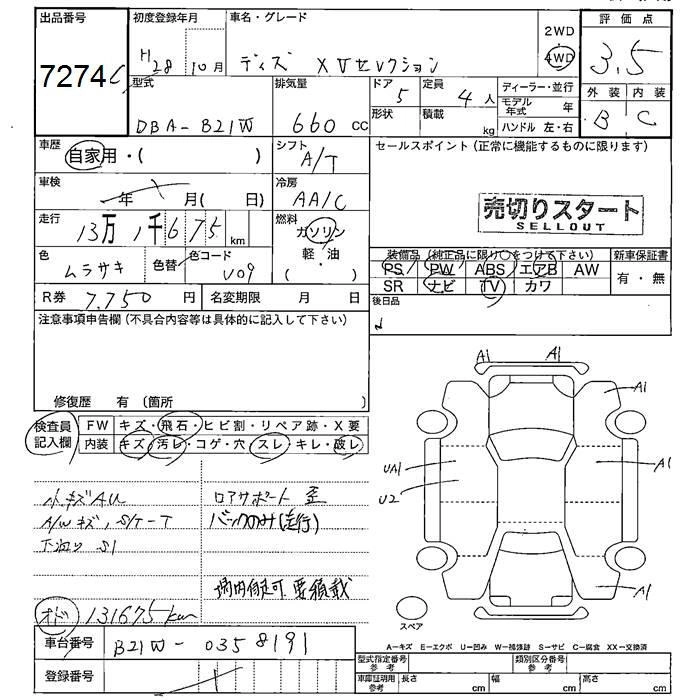 出品番号 初度登録年月 車名・グレード 2WD 評価点
7274 H28 10月 デイズ XVセレクション 4WD 3.5
型式 排気量 ドア 5 定員 4人 ディーラー・並行 外装 内装
DBA-B21W 660 CC 形状 積載 kg モデル年式 年 B C
ハンドル 左・右
車歴 シフト セールスポイント (正常に機能するものに限ります)
自家用・( ) A/T
車検 冷房
年 月( 日) AA/C 売切りスタート
SELLOUT
走行 燃料
13万1千675 km ガソリン
色 色替 色コード 軽・油 装備品 (純正品に限り○をつけて下さい) 新車保証書
ムラサキ V09 ( ) PS PW ABS エアB AW 有・無
R券 7.750 円 名変期限 月 日 SR ナビ TV カワ
注意事項申告欄 (不具合内容等は具体的に記入して下さい) 後日品
修復歴 有 (箇所 )
検査員記入欄 FW キズ・飛石・ヒビ割・リペア跡・X要
内装 キズ・汚レ・コゲ・穴・スレ・キレ・破レ
A1 A1
A1
UA1 A1
U2
A1
小キズAU ロアサポート 歪
A/Wキズ、S/T-T バックのみ(走行)
下廻り S1
場内自走可 要積載
オド 131675km
スペア
車台番号 B21W-0358191
A－キズ E－エクボ U－凹み W－補修跡 S－サビ C－腐食 XX－交換済
登録番号 型式指定番号参考 類別区分番号参考
車庫証明用参考 長さ cm 幅 cm 高さ cm